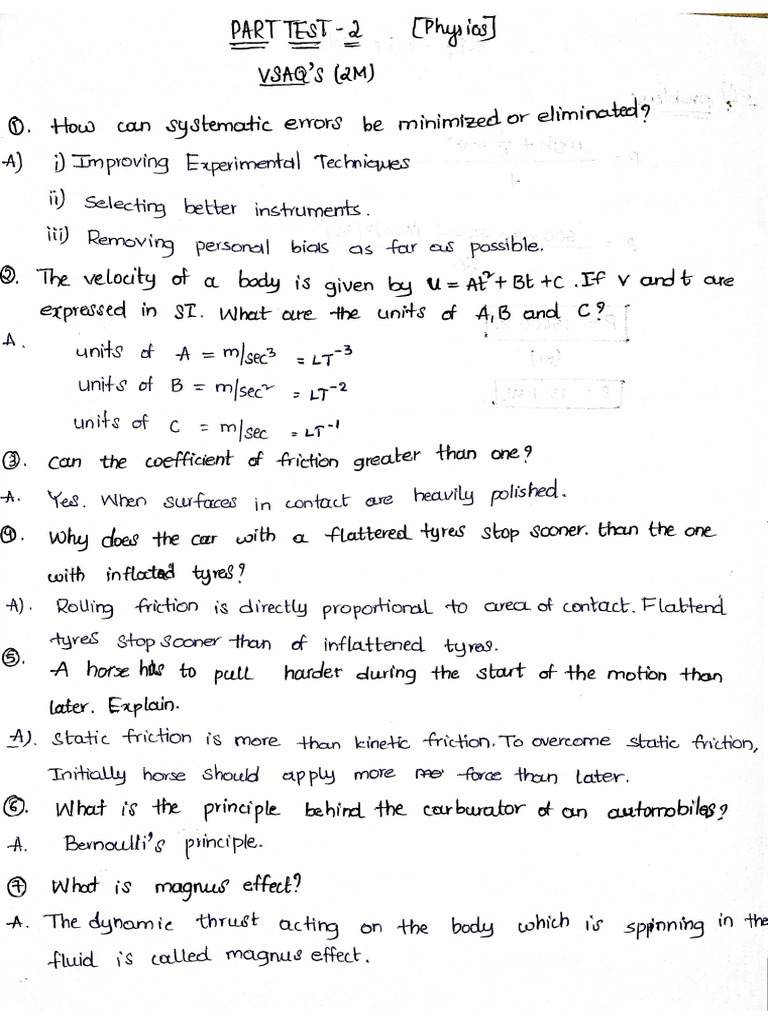 PART TEST - 2 [Physics]
VSAQ'S (2M)
①. How can systematic errors be minimized or eliminated?
A) i) Improving Experimental Techniques
ii) Selecting better instruments.
iii) Removing personal bias as far as possible.
②. The velocity of a body is given by u = At² + Bt + C. If v and t are
expressed in SI. What are the units of A, B and C?
A. units of A = m/sec³ = LT⁻³
units of B = m/sec² = LT⁻²
units of C = m/sec = LT⁻¹
③. Can the coefficient of friction greater than one?
A. Yes. When surfaces in contact are heavily polished.
④. Why does the car with a flattered tyres stop sooner. than the one
with inflated tyres?
A). Rolling friction is directly proportional to area of contact. Flattend
tyres stop sooner than of inflattened tyres.
⑤. A horse has to pull harder during the start of the motion than
later. Explain.
A). Static friction is more than kinetic friction. To overcome static friction,
Initially horse should apply more force than later.
⑥. What is the principle behind the carburator of an automobiles?
A. Bernoulli's principle.
⑦ What is magnus effect?
A. The dynamic thrust acting on the body which is spinning in the
fluid is called magnus effect.